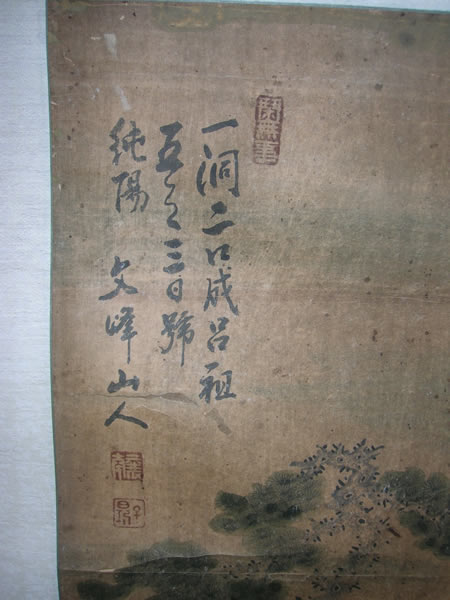 一洞二口成吕祖
五之三日號
純陽 文峰山人